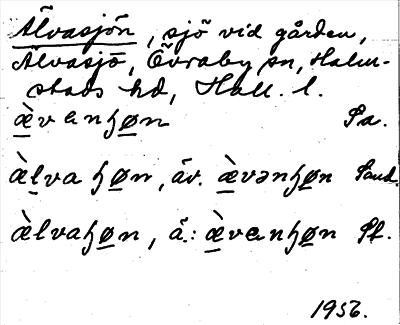 Älvasjön, sjö vid gården,
Älvasjö, Övraby sn, Halm-
stads hd, Hall. l.
æ̀vanɧøn Sa.
æ̀lvaɧøn, äv. æ̀vənɧøn Sand.
æ̀lvaɧøn, ä.: æ̀vanɧøn Pf.
1956.